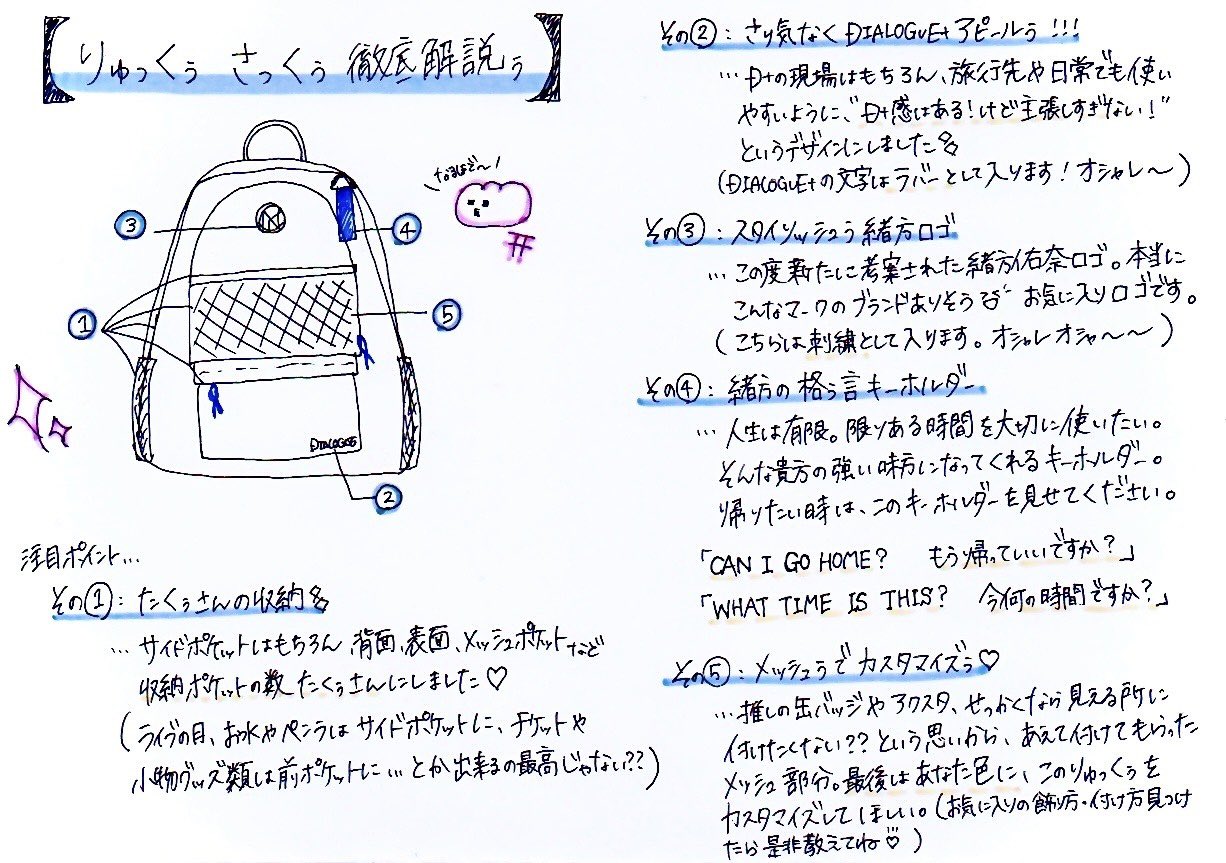 【りゅっくぅ さっくぅ 徹底解説ぅ】
なるほど〜
③
④
①
⑤
DIALOGUE
②
注目ポイント…
その①：たくぅさんの収納
…サイドポケットはもちろん、背面、表面、メッシュポケットなど
収納ポケットの数 たくぅさんにしました♡
(ライヴの日、お水やペンラはサイドポケットに、チケットや
小物グッズ類は前ポケットに…とか出来るの最高じゃない??)
その②：さり気なくDIALOGUE+アピールぅ!!!
…D+の現場はもちろん、旅行先や日常でも使い
やすいように、"D+感はある！けど主張しすぎない！"
というデザインにしました
(DIALOGUE+の文字はラバーとして入ります！オシャレ〜)
その③：スタイリッシュぅ緒方ロゴ
…この度新たに考案された緒方佑奈ロゴ。本当に
こんなマークのブランドありそう お気に入りロゴです。
(こちらは刺繍として入ります。オシャレオシャ〜〜)
その④：緒方の格ぅ言キーホルダー
…人生は有限。限りある時間を大切に使いたい。
そんな貴方の強い味方になってくれるキーホルダー。
帰りたい時は、このキーホルダーを見せてください。
「CAN I GO HOME?　もう帰っていいですか？」
「WHAT TIME IS THIS?　今何の時間ですか？」
その⑤：メッシュぅでカスタマイズぅ♡
…推しの缶バッジやアクスタ、せっかくなら見える所に
付けたくない??という思いから、あえて付けてもらった
メッシュ部分。最後はあなた色に、このりゅっくぅを
カスタマイズしてほしい。(お気に入りの飾り方・付け方見つけ
たら是非教えてね♡)